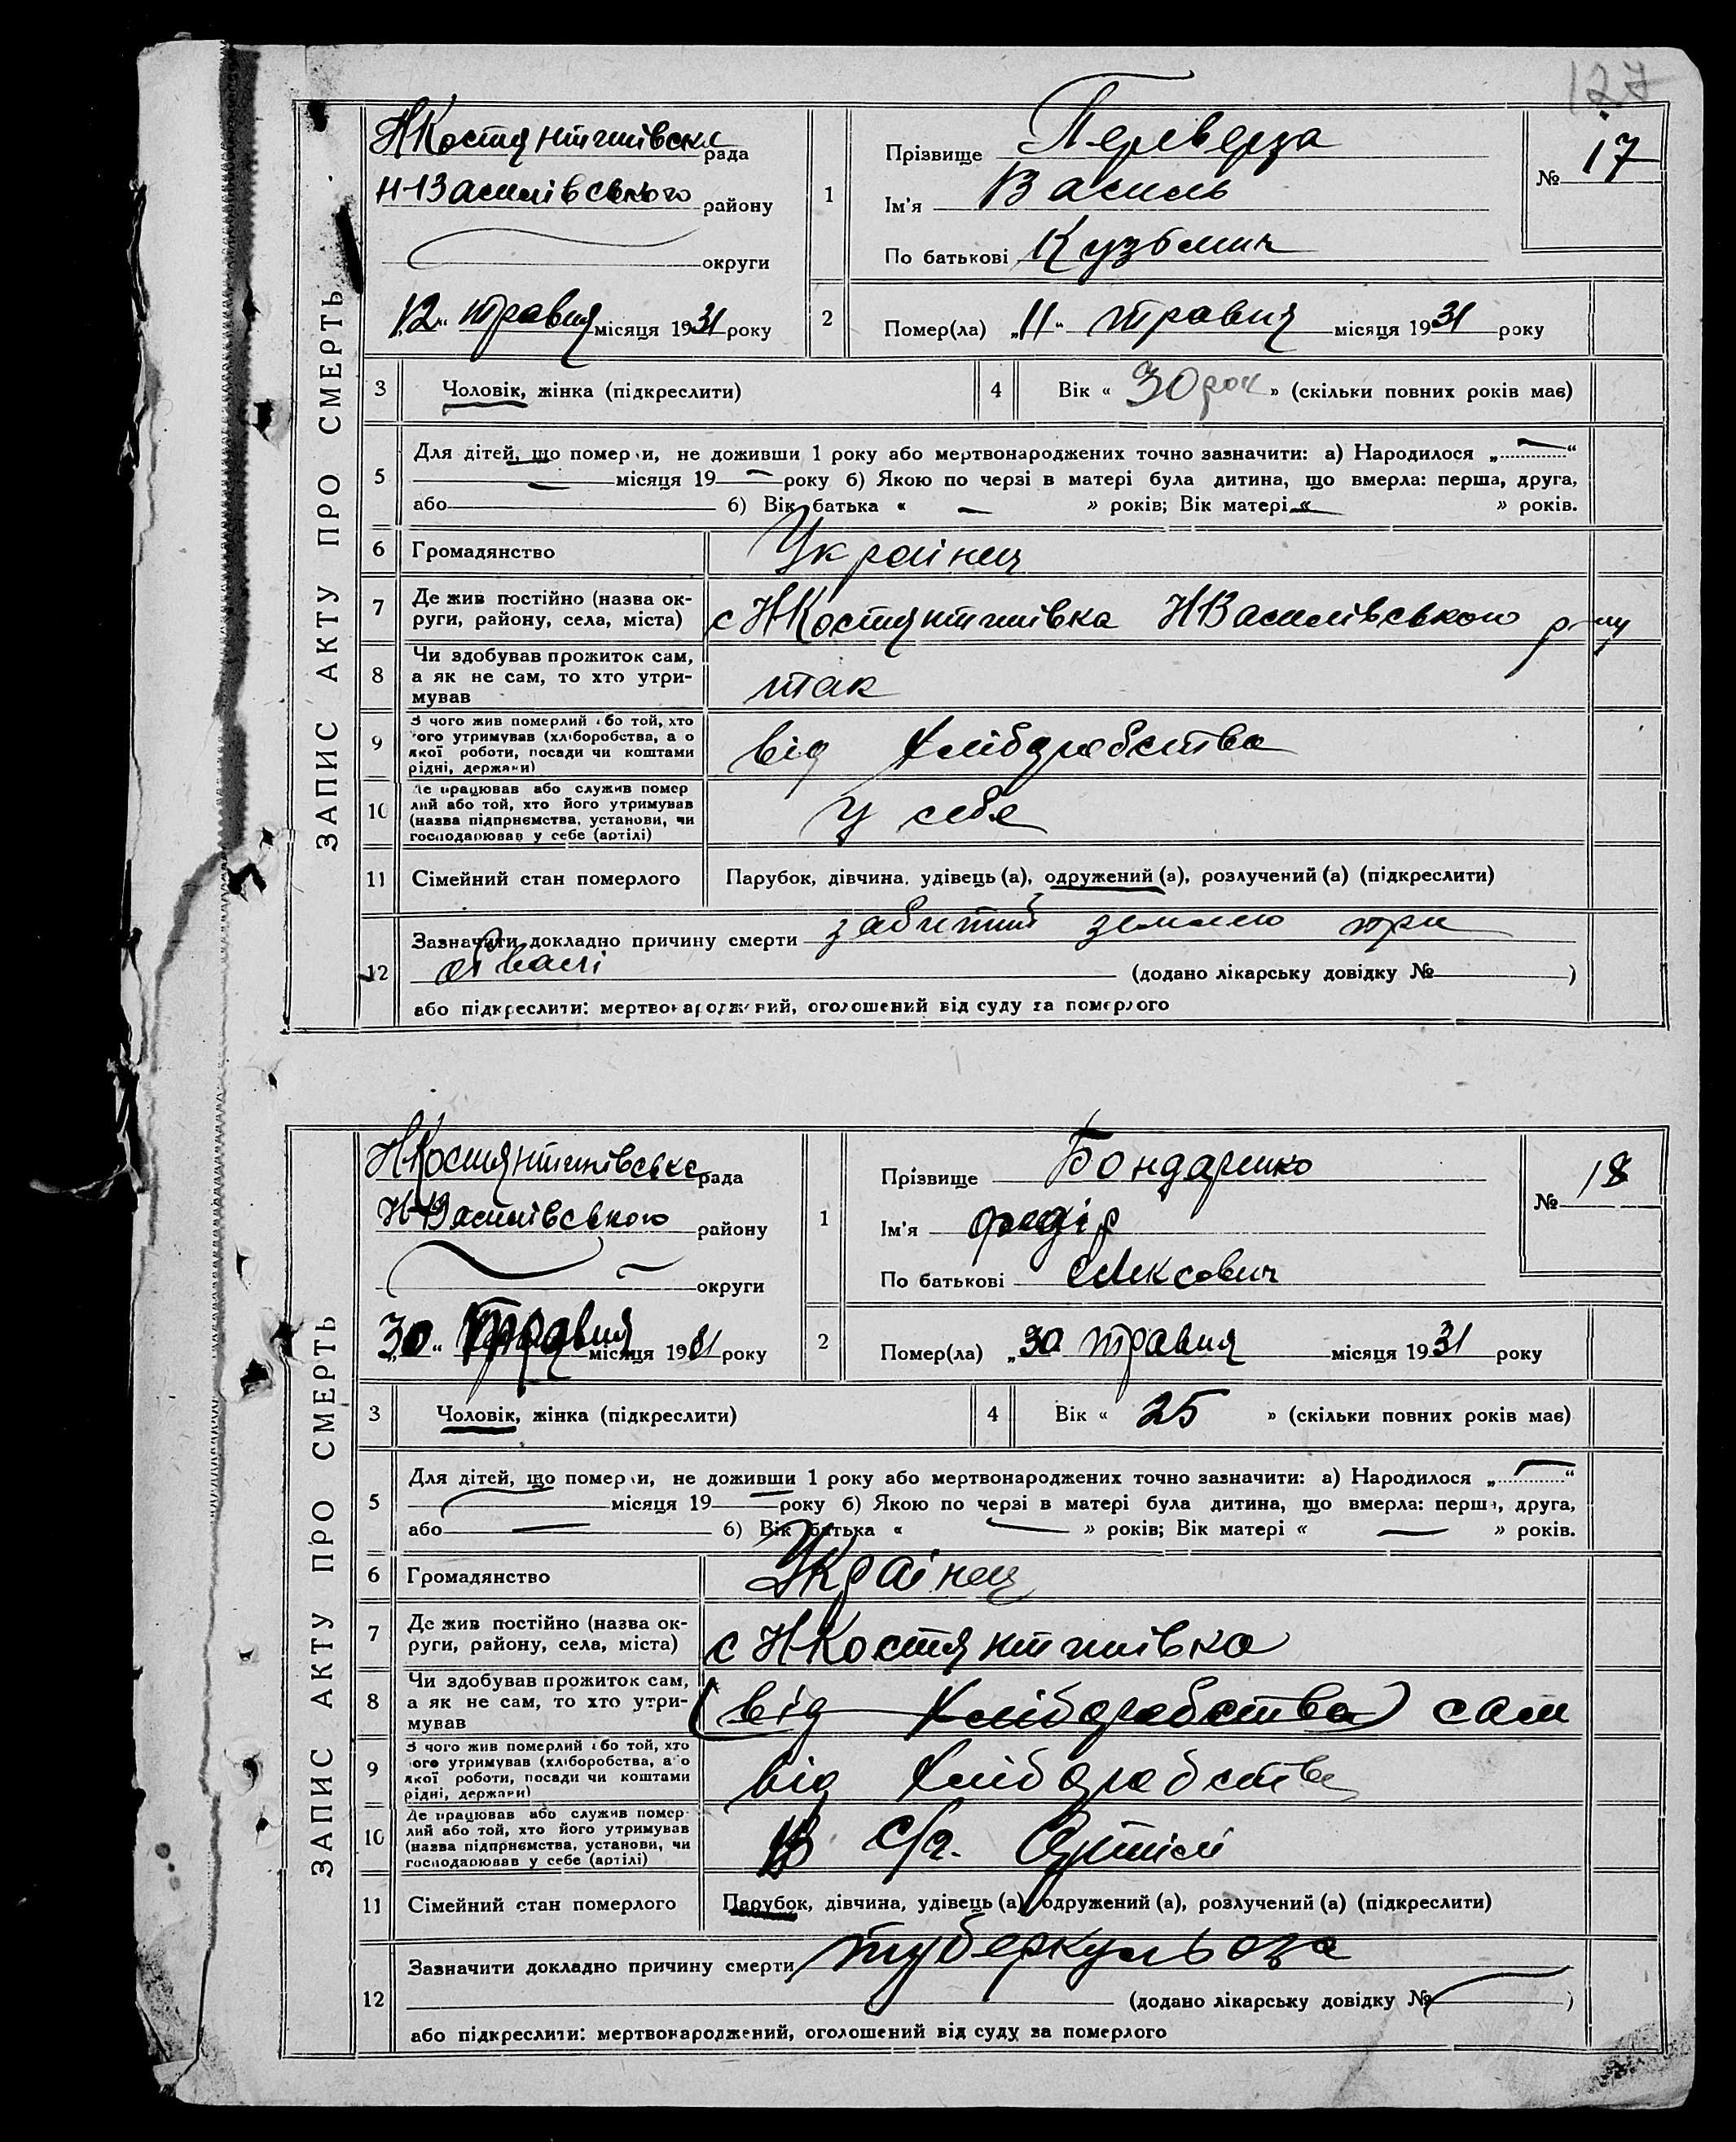 127
ЗАПИС АКТУ ПРО СМЕРТЬ
НКостянтинівська рада
Н-Василівського району
округи
„12“ травня місяця 1931 року
1
Прізвище Переверза
Ім'я Василь
По батькові Кузьмич
№ 17
2
Помер(ла) „11“ травня місяця 1931 року
3 Чоловік, жінка (підкреслити)
4 Вік « 30 рок » (скільки повних років має)
5
Для дітей, що померли, не доживши 1 року або мертвонароджених точно зазначити: а) Народилося „ “
місяця 19 року б) Якою по черзі в матері була дитина, що вмерла: перша, друга,
або б) Вік батька « » років; Вік матері « » років.
6 Громадянство Українец
7 Де жив постійно (назва ок-
руги, району, села, міста) с НКостянтинівка НВасилівського р-ну
8 Чи здобував прожиток сам,
а як не сам, то хто утри-
мував так
9 З чого жив померлий або той, хто
його утримував (хліборобства, або
якої роботи, посади чи коштами
рідні, держави) від хліборобства
10 Де працював або служив помер
лий або той, хто його утримував
(назва підприємства, установи, чи
господарював у себе (артілі) У себе
11 Сімейний стан померлого Парубок, дівчина, удівець (а), одружений (а), розлучений (а) (підкреслити)
12 Зазначити докладно причину смерти забитий землею при
обвалі (додано лікарську довідку № )
або підкреслити: мертвонароджений, оголошений від суду за померлого
ЗАПИС АКТУ ПРО СМЕРТЬ
НКостянтинівська рада
Н-Василівського району
округи
„30“ травня місяця 1931 року
1
Прізвище Бондаренко
Ім'я Федір
По батькові Олексович
№ 18
2
Помер(ла) „30 травня місяця 1931 року
3 Чоловік, жінка (підкреслити)
4 Вік « 25 » (скільки повних років має)
5
Для дітей, що померли, не доживши 1 року або мертвонароджених точно зазначити: а) Народилося „ “
місяця 19 року б) Якою по черзі в матері була дитина, що вмерла: перша, друга,
або б) Вік батька « » років; Вік матері « » років.
6 Громадянство Українец
7 Де жив постійно (назва ок-
руги, району, села, міста) с НКостянтинівка
8 Чи здобував прожиток сам,
а як не сам, то хто утри-
мував (від хліборобства) сам
9 З чого жив померлий або той, хто
його утримував (хліборобства, або
якої роботи, посади чи коштами
рідні, держави) від хліборобства
10 Де працював або служив помер-
лий або той, хто його утримував
(назва підприємства, установи, чи
господарював у себе (артілі) В с/г. Артілі
11 Сімейний стан померлого Парубок, дівчина, удівець (а), одружений (а), розлучений (а) (підкреслити)
12 Зазначити докладно причину смерти туберкульоза
(додано лікарську довідку № )
або підкреслити: мертвонароджений, оголошений від суду за померлого